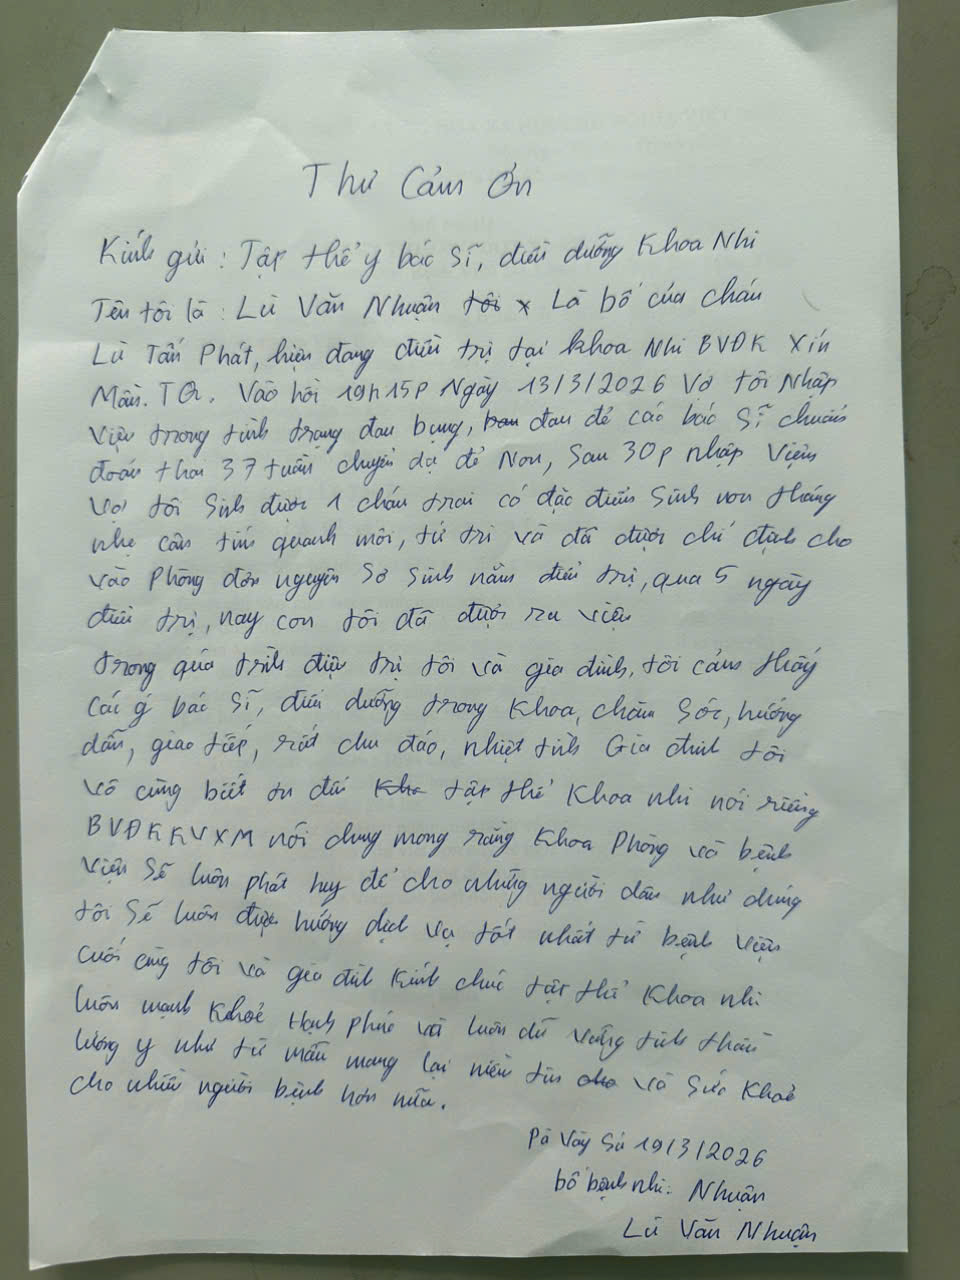 Thư Cảm Ơn
Kính gửi: Tập thể y bác sĩ, điều dưỡng Khoa Nhi
Tên tôi là: Lù Văn Nhuận tôi x Là bố của cháu
Lù Tấn Phát, hiện đang điều trị tại khoa Nhi BVĐK Xín
Mần. TQ. Vào hồi 19h15p Ngày 13/3/2026 Vợ tôi Nhập
viện trong tình trạng đau bụng, đau đẻ các bác sĩ chuẩn
đoán thai 37 tuần chuyển dạ đẻ Non, Sau 30p nhập Viện
vợ tôi Sinh được 1 cháu trai có đặc điểm Sinh non tháng
nhẹ cân tím quanh môi, tứ tri và đã được chỉ định cho
vào Phòng đơn nguyên Sơ Sinh nằm điều trị, qua 5 ngày
điều trị, nay con tôi đã được ra viện
trong quá trình điệu trị tôi và gia đình, tôi cảm thấy
Các ý bác Sĩ, điều dưỡng trong Khoa, chăm Sóc, hướng
dẫn, giao tiếp, rất chu đáo, nhiệt tình Gia đình tôi
vô cùng biết ơn đối Kho tập thể Khoa nhi nói riêng
BVĐKKVXM nói chung mong rằng Khoa Phòng và bệnh
viện Sẽ luôn phát huy để cho những người dân như chúng
tôi Sẽ luôn được hưởng dịch vụ tốt nhất từ bệnh viện
cuối cùng tôi và gia đình Kính chúc tập thể Khoa nhi
luôn mạnh Khoẻ Hạnh phúc và luôn dữ vững tinh thần
lương y như từ mẫu mang lại niềm tin cho và Sức Khoẻ
cho nhiều người bệnh hơn nữa.
Pà Vầy Sủ 19/3/2026
bố bệnh nhi: Nhuận
Lù Văn Nhuận